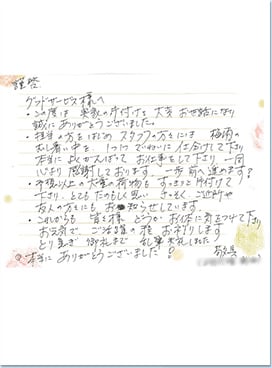 謹啓
グッドサービス様へ
・この度は 実家の片付けを 大変 お世話になり
誠に ありがとうございました。
・担当の方をはじめ スタッフの方々には 梅雨の
むし暑い中を、1つ1つ ていねいに 仕分けして下り
本当に がんばって お仕事をして下り 一同
心より 感謝しております。一歩前へ進めます?
・予想以上の 大量の荷物も すっきりと 片付けて
下り、とても たのもしく思い さっそく ご近所や
友人の方々にも お知らせしています。
・これからも 皆々様 どうか お体に 気をつけて下り
お元気で ご活躍の程 お祈りします
とり急ぎ 御礼まで 乱筆 失礼しました
敬具
◎本当に ありがとうございました?